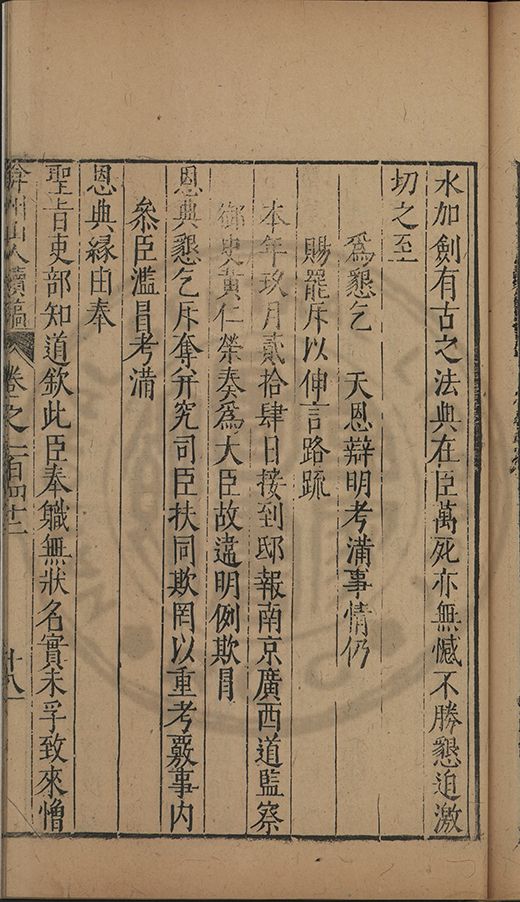 水加劍有古之法典在臣萬死亦無憾不勝懇迫激
切之至
爲懇乞　天恩辯明考滿事情仍
賜罷斥以伸言路疏
本年玖月貳拾肆日接到邸報南京廣西道監察
御史黃仁榮奏爲大臣故違明例欺冒
恩典懇乞斥奪幷究司臣扶同欺罔以重考覈事內
叅臣濫冒考滿
恩典緣由奉
聖旨吏部知道欽此臣奉職無狀名實未孚致來憎
弇州山人續稿　卷之一百四十二　十八